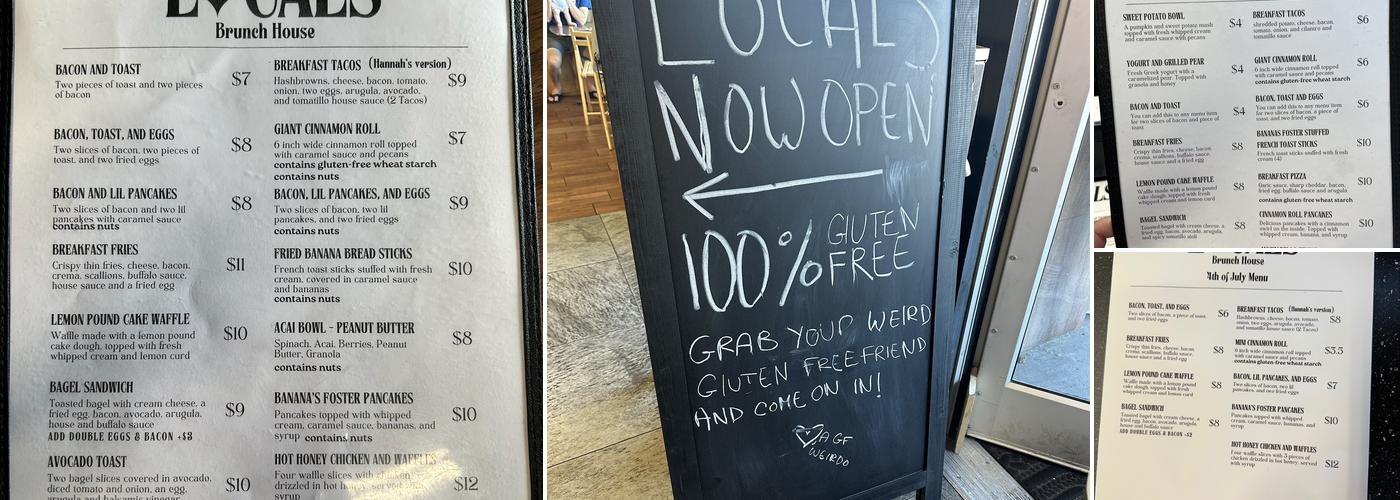 LOCALS
Brunch House
BACON AND TOAST $7
Two pieces of toast and two pieces
of bacon
BACON, TOAST, AND EGGS $8
Two slices of bacon, two pieces of
toast, and two fried eggs
BACON AND LIL PANCAKES $8
Two slices of bacon and two lil
pancakes with caramel sauce
contains nuts
BREAKFAST FRIES $11
Crispy thin fries, cheese, bacon,
crema, scallions, buffalo sauce,
house sauce and a fried egg
LEMON POUND CAKE WAFFLE $10
Waffle made with a lemon pound
cake dough, topped with fresh
whipped cream and lemon curd
BAGEL SANDWICH $9
Toasted bagel with cream cheese, a
fried egg, bacon, avocado, arugula,
house and buffalo sauce
ADD DOUBLE EGGS & BACON +$3
AVOCADO TOAST $10
Two bagel slices covered in avocado,
diced tomato and onion, an egg,
arugula and balsamic vinegar
BREAKFAST TACOS (Hannah's version) $9
Hashbrowns, cheese, bacon, tomato,
onion, two eggs, arugula, avocado,
and tomatillo house sauce (2 Tacos)
GIANT CINNAMON ROLL $7
6 inch wide cinnamon roll topped
with caramel sauce and pecans
contains gluten-free wheat starch
contains nuts
BACON, LIL PANCAKES, AND EGGS $9
Two slices of bacon, two lil
pancakes, and two fried eggs
contains nuts
FRIED BANANA BREAD STICKS $10
French toast sticks stuffed with fresh
cream, covered in caramel sauce
and bananas
contains nuts
ACAI BOWL - PEANUT BUTTER $8
Spinach, Acai, Berries, Peanut
Butter, Granola
contains nuts
BANANA'S FOSTER PANCAKES $10
Pancakes topped with whipped
cream, caramel sauce, bananas, and
syrup contains nuts
HOT HONEY CHICKEN AND WAFFLES $12
Four waffle slices with chicken
drizzled in hot honey, served with
syrup
LOCALS
NOW OPEN
100% GLUTEN
FREE
GRAB YOUR WEIRD
GLUTEN FREE FRIEND
AND COME ON IN!
A GF
WEIRDO
SWEET POTATO BOWL $4
A pumpkin and sweet potato mash
topped with fresh whipped cream
and caramel sauce with pecans
YOGURT AND GRILLED PEAR $4
Fresh Greek yogurt with a
caramelized pear. Topped with
granola and honey
BACON AND TOAST $4
You can add this to any menu item
for two slices of bacon and
toast
BREAKFAST FRIES $8
Crispy thin fries, cheese, bacon,
crema, scallions, buffalo sauce,
house sauce and a fried egg
LEMON POUND CAKE WAFFLE $8
Waffle made with a lemon pound
cake dough, topped with fresh
whipped cream and lemon curd
BAGEL SANDWICH $8
Toasted bagel with cream cheese, a
fried egg, bacon, avocado, arugula,
and spicy tomatillo aioli
BREAKFAST TACOS $6
shredded potato, cheese, bacon,
tomato, onion, and cilantro and
tomatillo sauce
GIANT CINNAMON ROLL $6
6 inch wide cinnamon roll topped
with caramel sauce and pecans
contains gluten-free wheat starch
BACON, TOAST AND EGGS $6
You can add this to any menu item
for two slices of bacon, a piece of
toast, and two fried eggs
BANANAS FOSTER STUFFED
FRENCH TOAST STICKS $10
French toast sticks stuffed with fresh
cream (4)
BREAKFAST PIZZA $10
Garic sauce, sharp cheddar, bacon,
fried egg, buffalo sauce and arugula
contains gluten-free wheat starch
CINNAMON ROLL PANCAKES $10
Delicious pancakes with a cinnamon
swirl on the inside. Topped with
whipped cream, banana, and syrup
Brunch House
4th of July Menu
BACON, TOAST, AND EGGS $6
Two slices of bacon, a piece of toast,
and two fried eggs
BREAKFAST FRIES $8
Crispy thin fries, cheese, bacon,
crema, scallions, buffalo sauce,
house sauce and a fried egg
LEMON POUND CAKE WAFFLE $8
Waffle made with a lemon pound
cake dough, topped with fresh
whipped cream and lemon curd
BAGEL SANDWICH $8
Toasted bagel with cream cheese, a
fried egg, bacon, avocado, arugula,
house and buffalo sauce
ADD DOUBLE EGGS & BACON +$2
BREAKFAST TACOS (Hannah's version) $8
Hashbrowns, cheese, bacon, tomato,
onion, two eggs, arugula, avocado,
and tomatillo house sauce (2 Tacos)
MINI CINNAMON ROLL $3.5
6 inch wide cinnamon roll topped
with caramel sauce and pecans
contains gluten-free wheat starch
BACON, LIL PANCAKES, AND EGGS $7
Two slices of bacon, two lil
pancakes, and two fried eggs
BANANA'S FOSTER PANCAKES $10
Pancakes topped with whipped
cream, caramel sauce, bananas, and
syrup
HOT HONEY CHICKEN AND WAFFLES $12
Four waffle slices with 3 pieces of
chicken drizzled in hot honey, served
with syrup